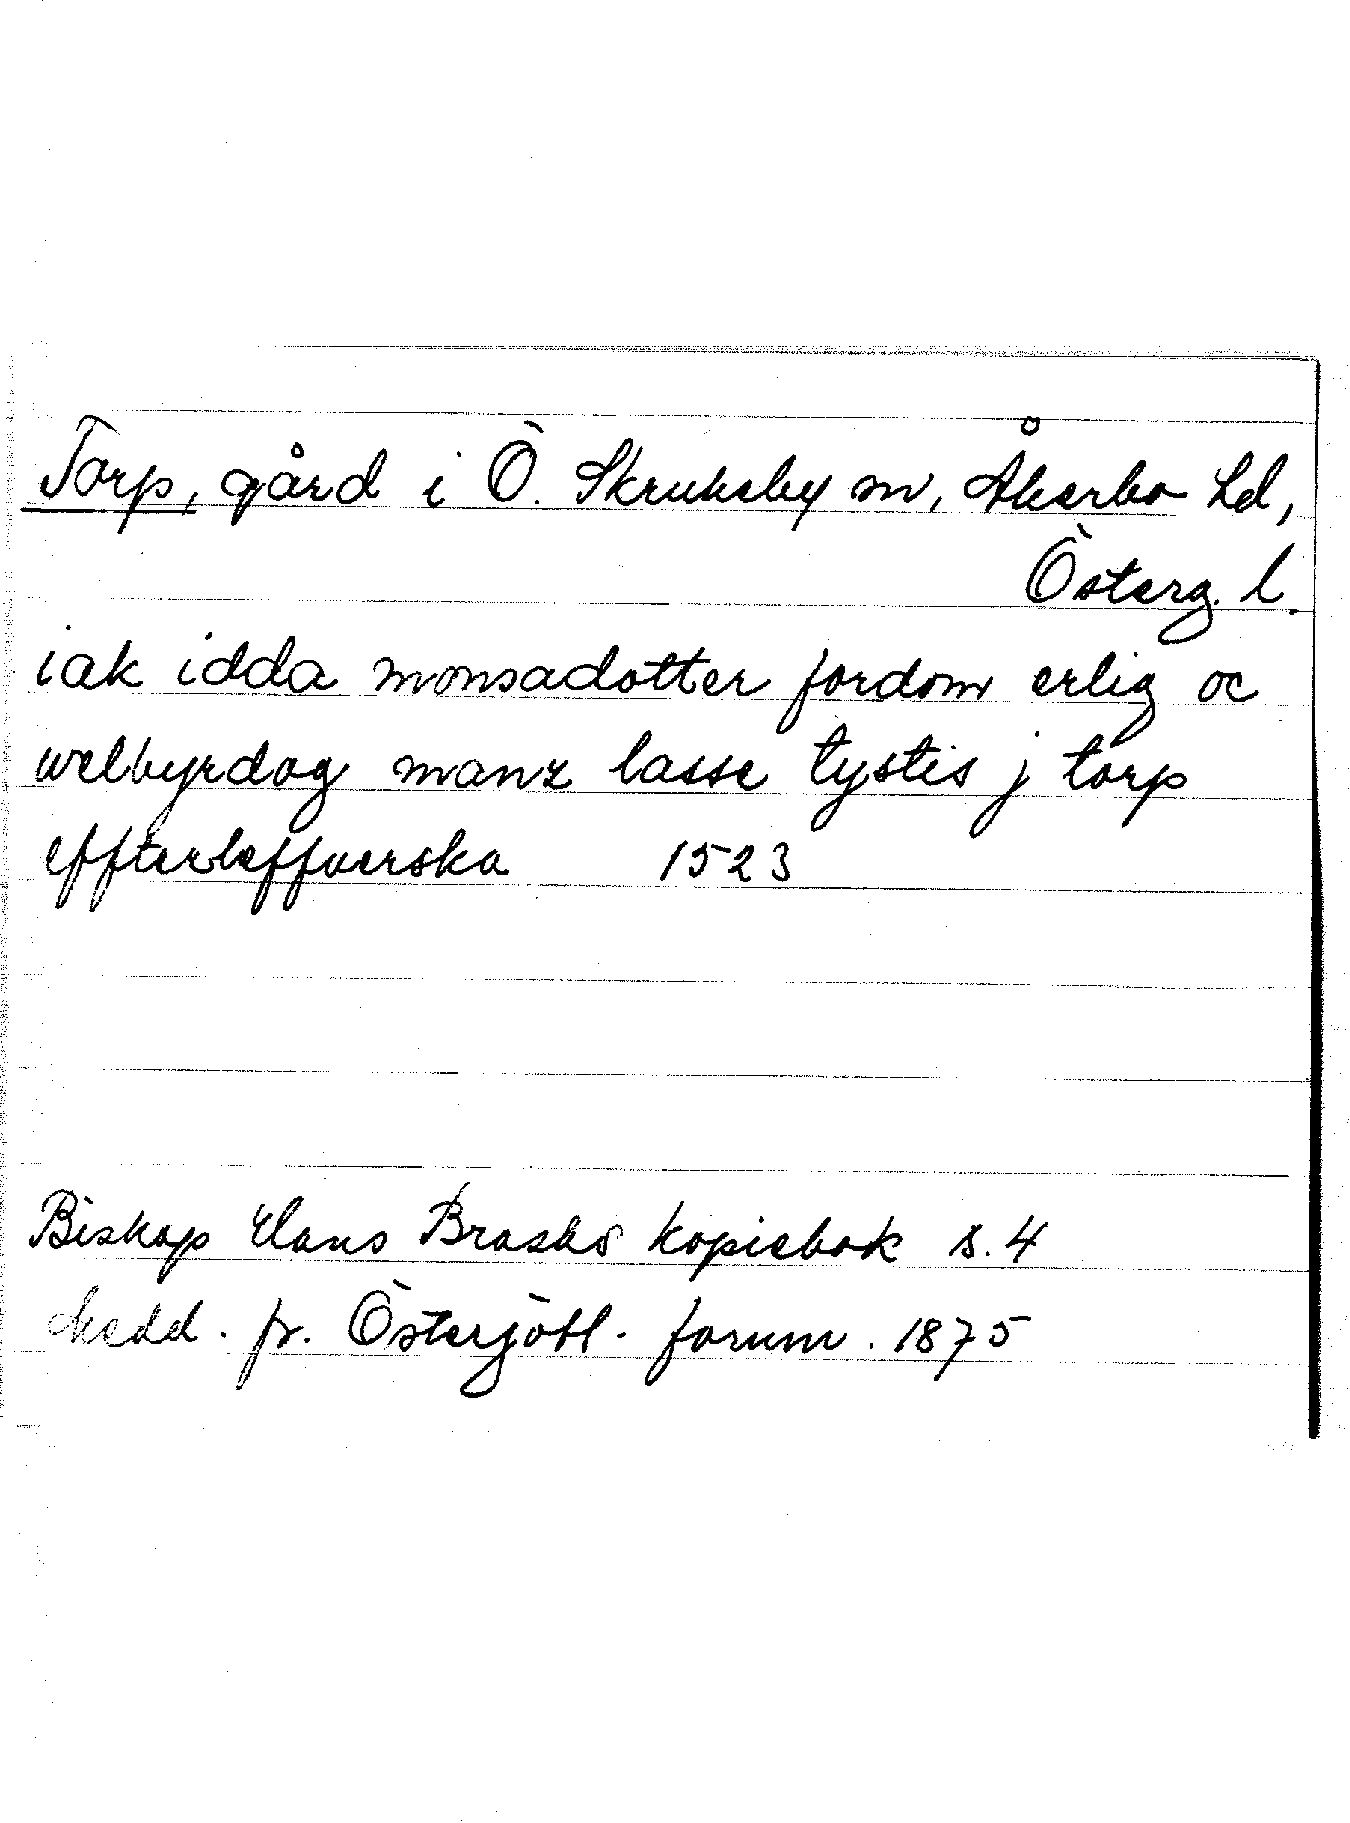 Torp, gård i Ö. Skrukeby sn, Åkerbo hd,
Österg. l.
iak idda monsadotter fordom erlig oc
welbyrdog manz lasse tystis j torp
effterleffuerska 1523
Biskop Hans Brasks kopiebok s. 4
Medd. fr. Östergötl. fornm. 1875